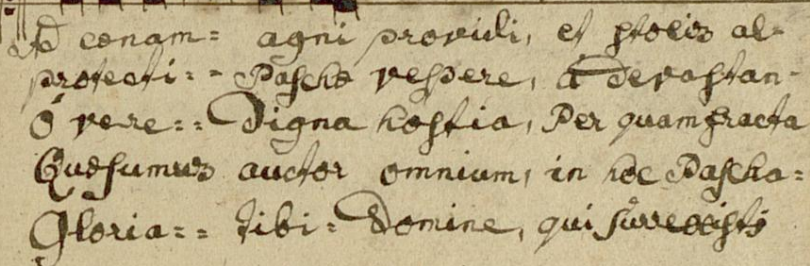 Ad cœnam= agni providi, et stolis al-
protecti:- Paschæ vespere, à devastan-
O vere:= Digna hostia, Per quam fracta
Quæsumus auctor omnium, in hoc Pascha=
Gloria=: tibi: Domine, qui surrexisti